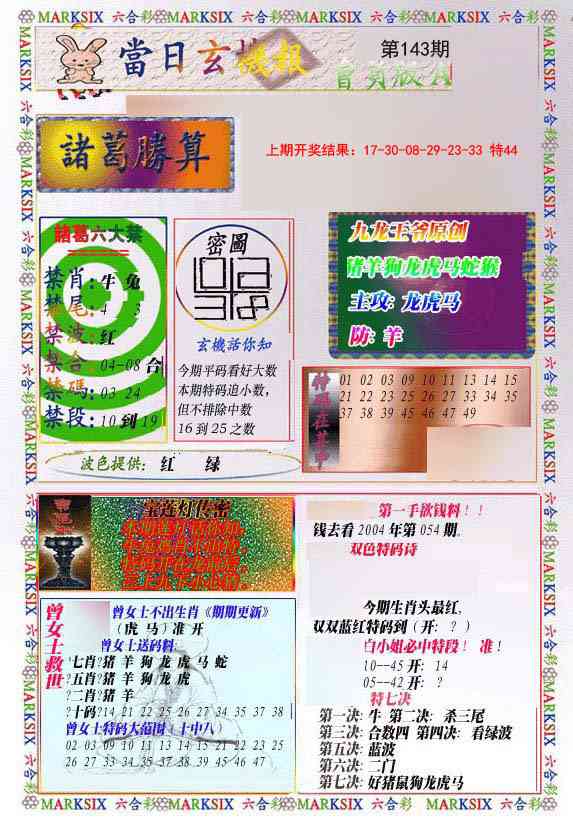 MARKSIX 六合彩 MARKSIX 六合彩 MARKSIX 六合彩 MARKSIX 六合彩
當日玄機報
第143期
諸葛勝算
上期开奖结果：17-30-08-29-23-33 特44
諸葛六大禁
禁肖：牛 兔
禁尾：4 3
禁波：红
禁合：04-08合
禁碼：03 24
禁段：10到19
密圖
玄機話你知
今期平码看好大数
本期特码追小数，
但不排除中数
16到25之数
九龙王爷原创
猪羊狗龙虎马蛇猴
主攻：龙虎马
防：羊
01 02 03 09 10 11 13 14 15
21 22 23 25 26 27 33 34 35
37 38 39 45 46 47 49
波色提供： 红 绿
宝莲灯传密
第一手欲钱料！！
钱去看2004年第054期.
双色特码诗
今期生肖头最红,
双双蓝红特码到（开：？）
白小姐必中特段！ 准！
10--45开：14
05--42开：？
特七决
第一决:牛 第二决: 杀三尾
第三决:合数四 第四决: 看绿波
第五决:蓝波
第六决:二门
第七决:好猪鼠狗龙虎马
曾女士救世
曾女士不出生肖《期期更新》
（虎马）准开
曾女士送码料
七肖?猪羊狗龙虎马蛇
?五肖?猪羊狗龙虎
?二肖?猪羊
?十码?14 21 22 25 26 27 34 35 37 38
曾女士特码大范围（十中八）
02 03 09 10 11 13 14 15 21 22 23 25
26 27 33 34 35 37 38 39 45 46 47
MARKSIX 六合彩 MARKSIX 六合彩 MARKSIX 六合彩 MARKSIX 六合彩